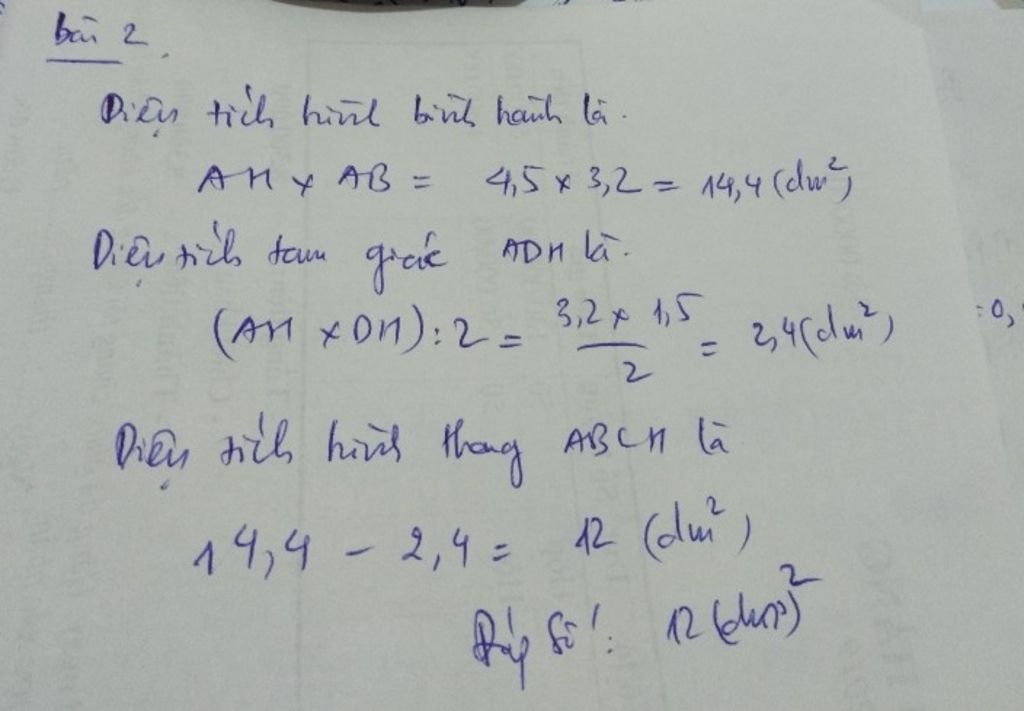 bài 2.
Diện tích hình bình hành là.
AH x AB = 4,5 x 3,2 = 14,4 (dm²)
Diện tích tam giác ADH là.
(AH x DH) : 2 = 3,2 x 1,5 / 2 = 2,4 (dm²)
Diện tích hình thang ABCH là
14,4 - 2,4 = 12 (dm²)
Đáp số: 12 (dm)²